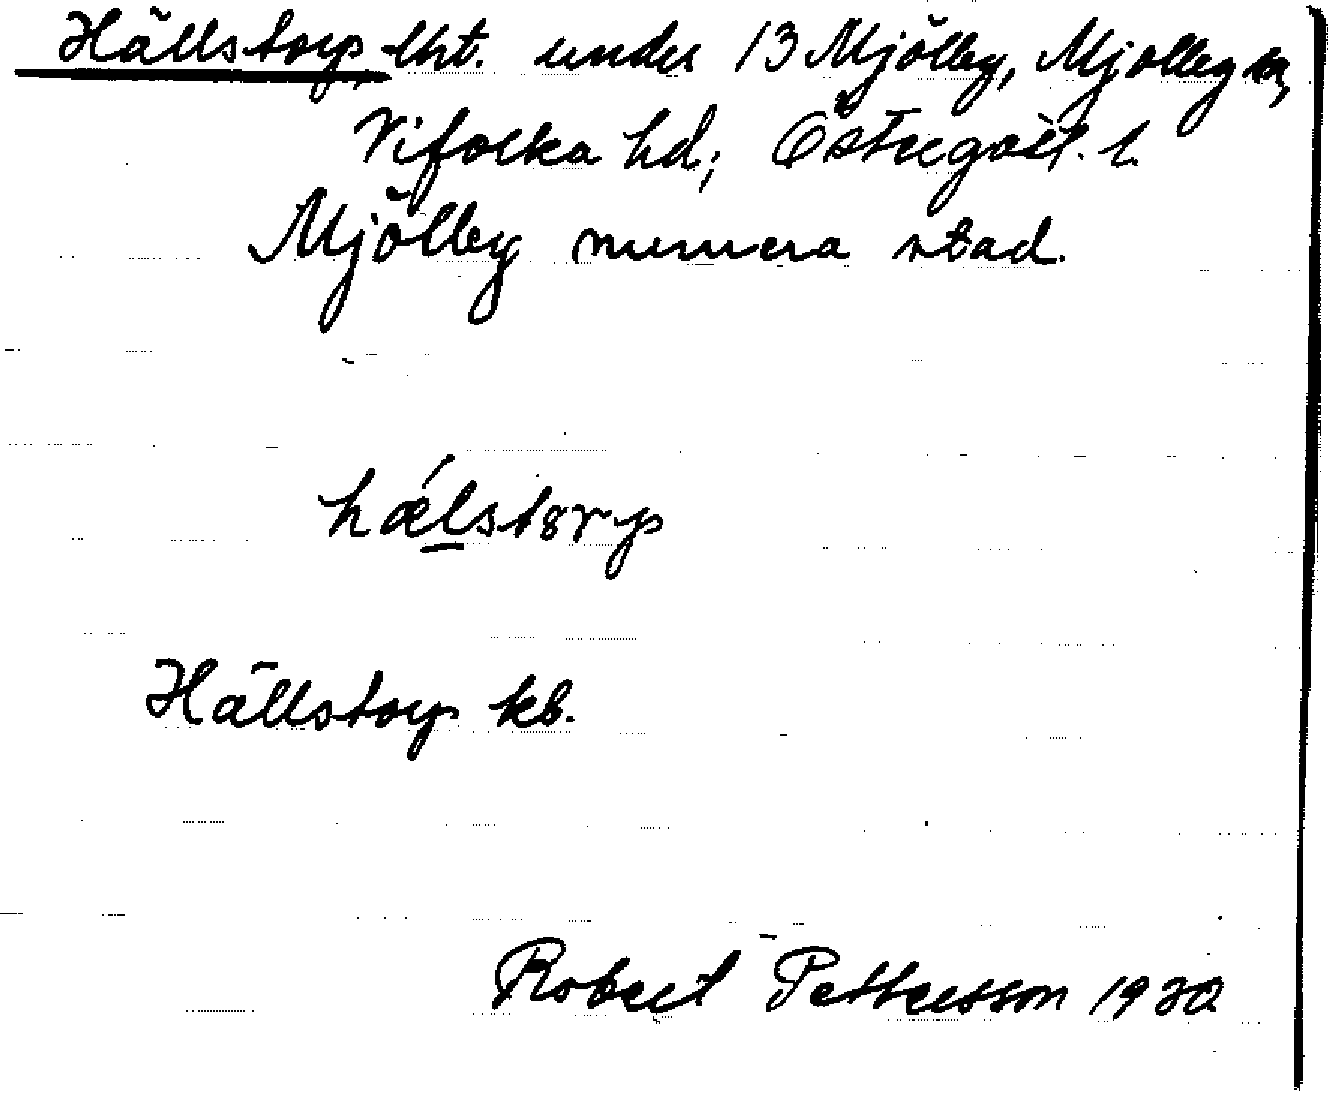 Hällstorp, lht. under 13 Mjölby, Mjölby sn,
Vifolka hd; Östergötl. l.
Mjölby numera stad.
hǽlstɔrp
Hällstorp kb.
Robert Pettersson 1930